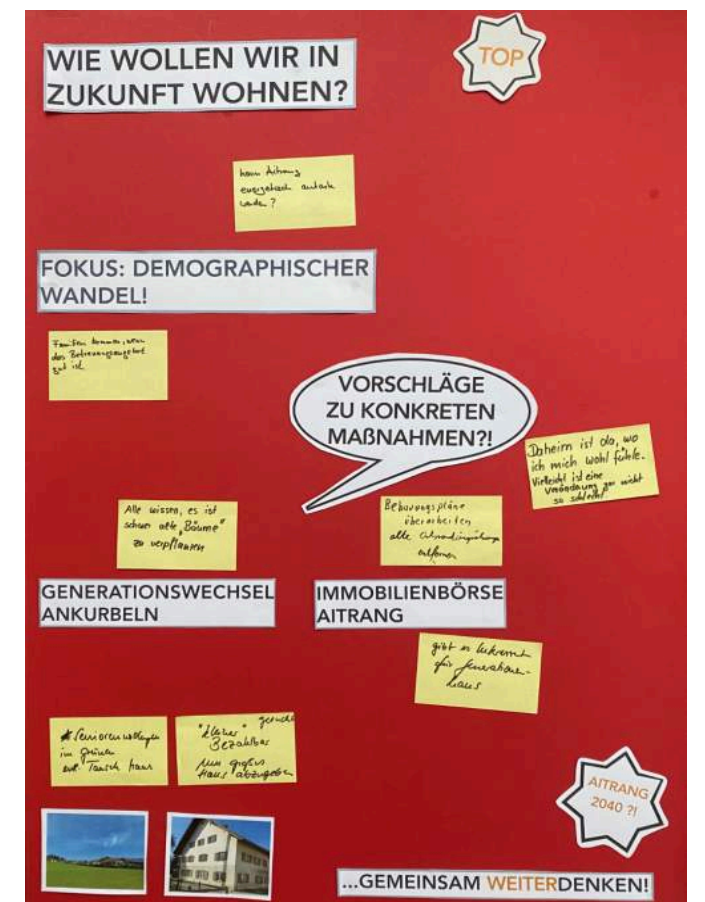 WIE WOLLEN WIR IN
ZUKUNFT WOHNEN?
TOP
kann Aitrang
energetisch autark
werden?
FOKUS: DEMOGRAPHISCHER
WANDEL!
Familien kommen, wenn
das Betreuungsangebot
gut ist
VORSCHLÄGE
ZU KONKRETEN
MAßNAHMEN?!
Daheim ist da, wo
ich mich wohl fühle.
Vielleicht ist eine
Veränderung gar nicht
so schlecht
Alle wissen, es ist
schwer alte "Bäume"
zu verpflanzen
Bebauungspläne
überarbeiten
alle
entfernen
GENERATIONSWECHSEL
ANKURBELN
IMMOBILIENBÖRSE
AITRANG
gibt es
für Generationen-
haus
Seniorenwohnungen
im Grünen
evt. Tausch Haus
"kleines" gesucht
Bezahlbar
Nun großes
Haus abzugeben
AITRANG
2040 ?!
...GEMEINSAM WEITERDENKEN!